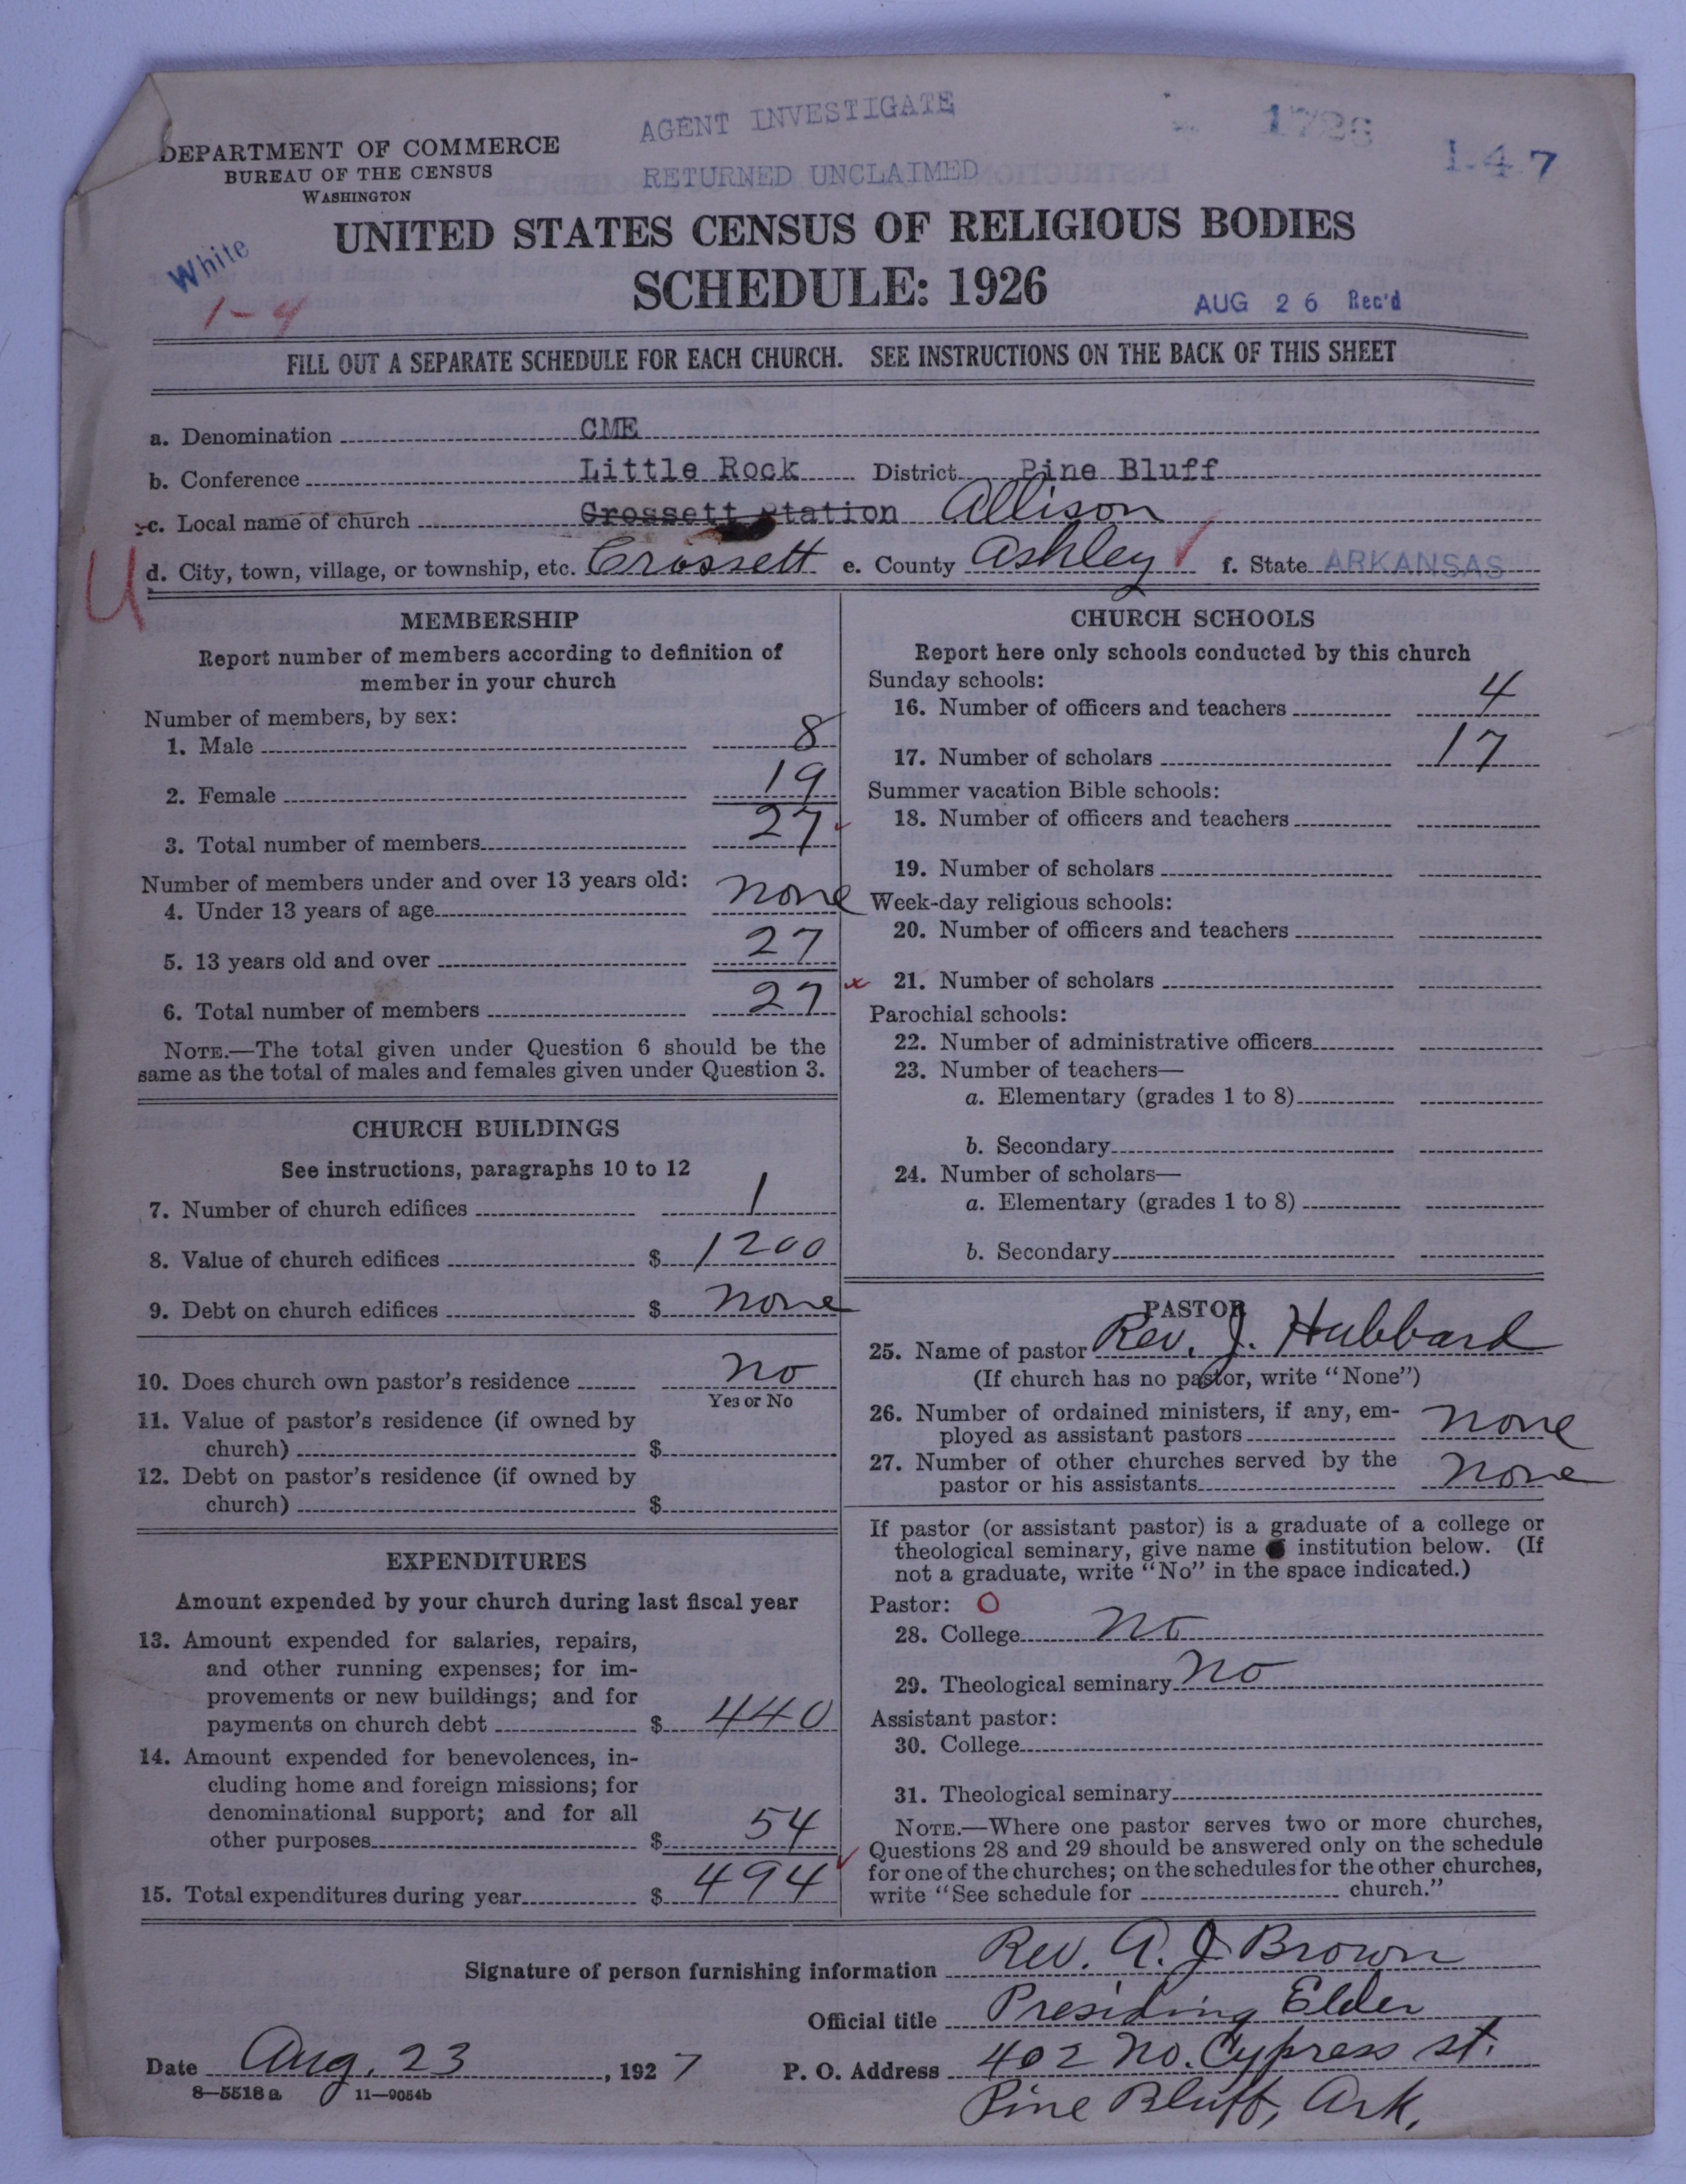 AGENT INVESTIGATE
RETURNED UNCLAIMED
1726
1247
DEPARTMENT OF COMMERCE
BUREAU OF THE CENSUS
WASHINGTON
UNITED STATES CENSUS OF RELIGIOUS BODIES
SCHEDULE: 1926
White
1-4
AUG 26 Rec'd
FILL OUT A SEPARATE SCHEDULE FOR EACH CHURCH. SEE INSTRUCTIONS ON THE BACK OF THIS SHEET
a. Denomination CME
b. Conference Little Rock District Pine Bluff
c. Local name of church Crossett Station Allison
U
d. City, town, village, or township, etc. Crossett e. County Ashley f. State ARKANSAS
MEMBERSHIP
Report number of members according to definition of
member in your church
Number of members, by sex:
1. Male 8
2. Female 19
3. Total number of members 27
Number of members under and over 13 years old:
4. Under 13 years of age none
5. 13 years old and over 27
6. Total number of members 27
NOTE.—The total given under Question 6 should be the
same as the total of males and females given under Question 3.
CHURCH BUILDINGS
See instructions, paragraphs 10 to 12
7. Number of church edifices 1
8. Value of church edifices $ 1200
9. Debt on church edifices $ none
10. Does church own pastor's residence no
Yes or No
11. Value of pastor's residence (if owned by
church) $
12. Debt on pastor's residence (if owned by
church) $
EXPENDITURES
Amount expended by your church during last fiscal year
13. Amount expended for salaries, repairs,
and other running expenses; for im-
provements or new buildings; and for
payments on church debt $ 440
14. Amount expended for benevolences, in-
cluding home and foreign missions; for
denominational support; and for all
other purposes $ 54
15. Total expenditures during year $ 494
CHURCH SCHOOLS
Report here only schools conducted by this church
Sunday schools:
16. Number of officers and teachers 4
17. Number of scholars 17
Summer vacation Bible schools:
18. Number of officers and teachers
19. Number of scholars
Week-day religious schools:
20. Number of officers and teachers
21. Number of scholars
Parochial schools:
22. Number of administrative officers
23. Number of teachers—
a. Elementary (grades 1 to 8)
b. Secondary
24. Number of scholars—
a. Elementary (grades 1 to 8)
b. Secondary
PASTOR
25. Name of pastor Rev. J. Hubbard
(If church has no pastor, write "None")
26. Number of ordained ministers, if any, em-
ployed as assistant pastors none
27. Number of other churches served by the
pastor or his assistants none
If pastor (or assistant pastor) is a graduate of a college or
theological seminary, give name institution below. (If
not a graduate, write "No" in the space indicated.)
Pastor: O
28. College no
29. Theological seminary no
Assistant pastor:
30. College
31. Theological seminary
NOTE.—Where one pastor serves two or more churches,
Questions 28 and 29 should be answered only on the schedule
for one of the churches; on the schedules for the other churches,
write "See schedule for church."
Signature of person furnishing information Rev. A. J Brown
Official title Presiding Elder
Date Aug. 23, 1927 P. O. Address 402 No. Cypress st.
8—5518 a 11—9054b
Pine Bluff, Ark.